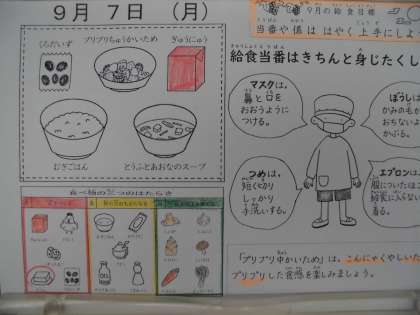 9月7日 (月)
くろだいず
プリプリちゅうかいため
ぎゅうにゅう
むぎごはん
とうふとあおなのスープ
食べ物の三つのはたらき
9月の給食目標
当番や係は はやく上手にしよう
給食当番はきちんと身じたくし
マスクは、
鼻と口を
おおうように
つける。
ぼうしは
かみの毛が
おちないよ
かぶる。
つめは、
短くきり
しっかり
手洗いする。
エプロン
服についたほこ
給食に入らない
着る。
「プリプリ中かいため」は、こんにゃくやしいた
プリプリした食感を楽しみましょう。